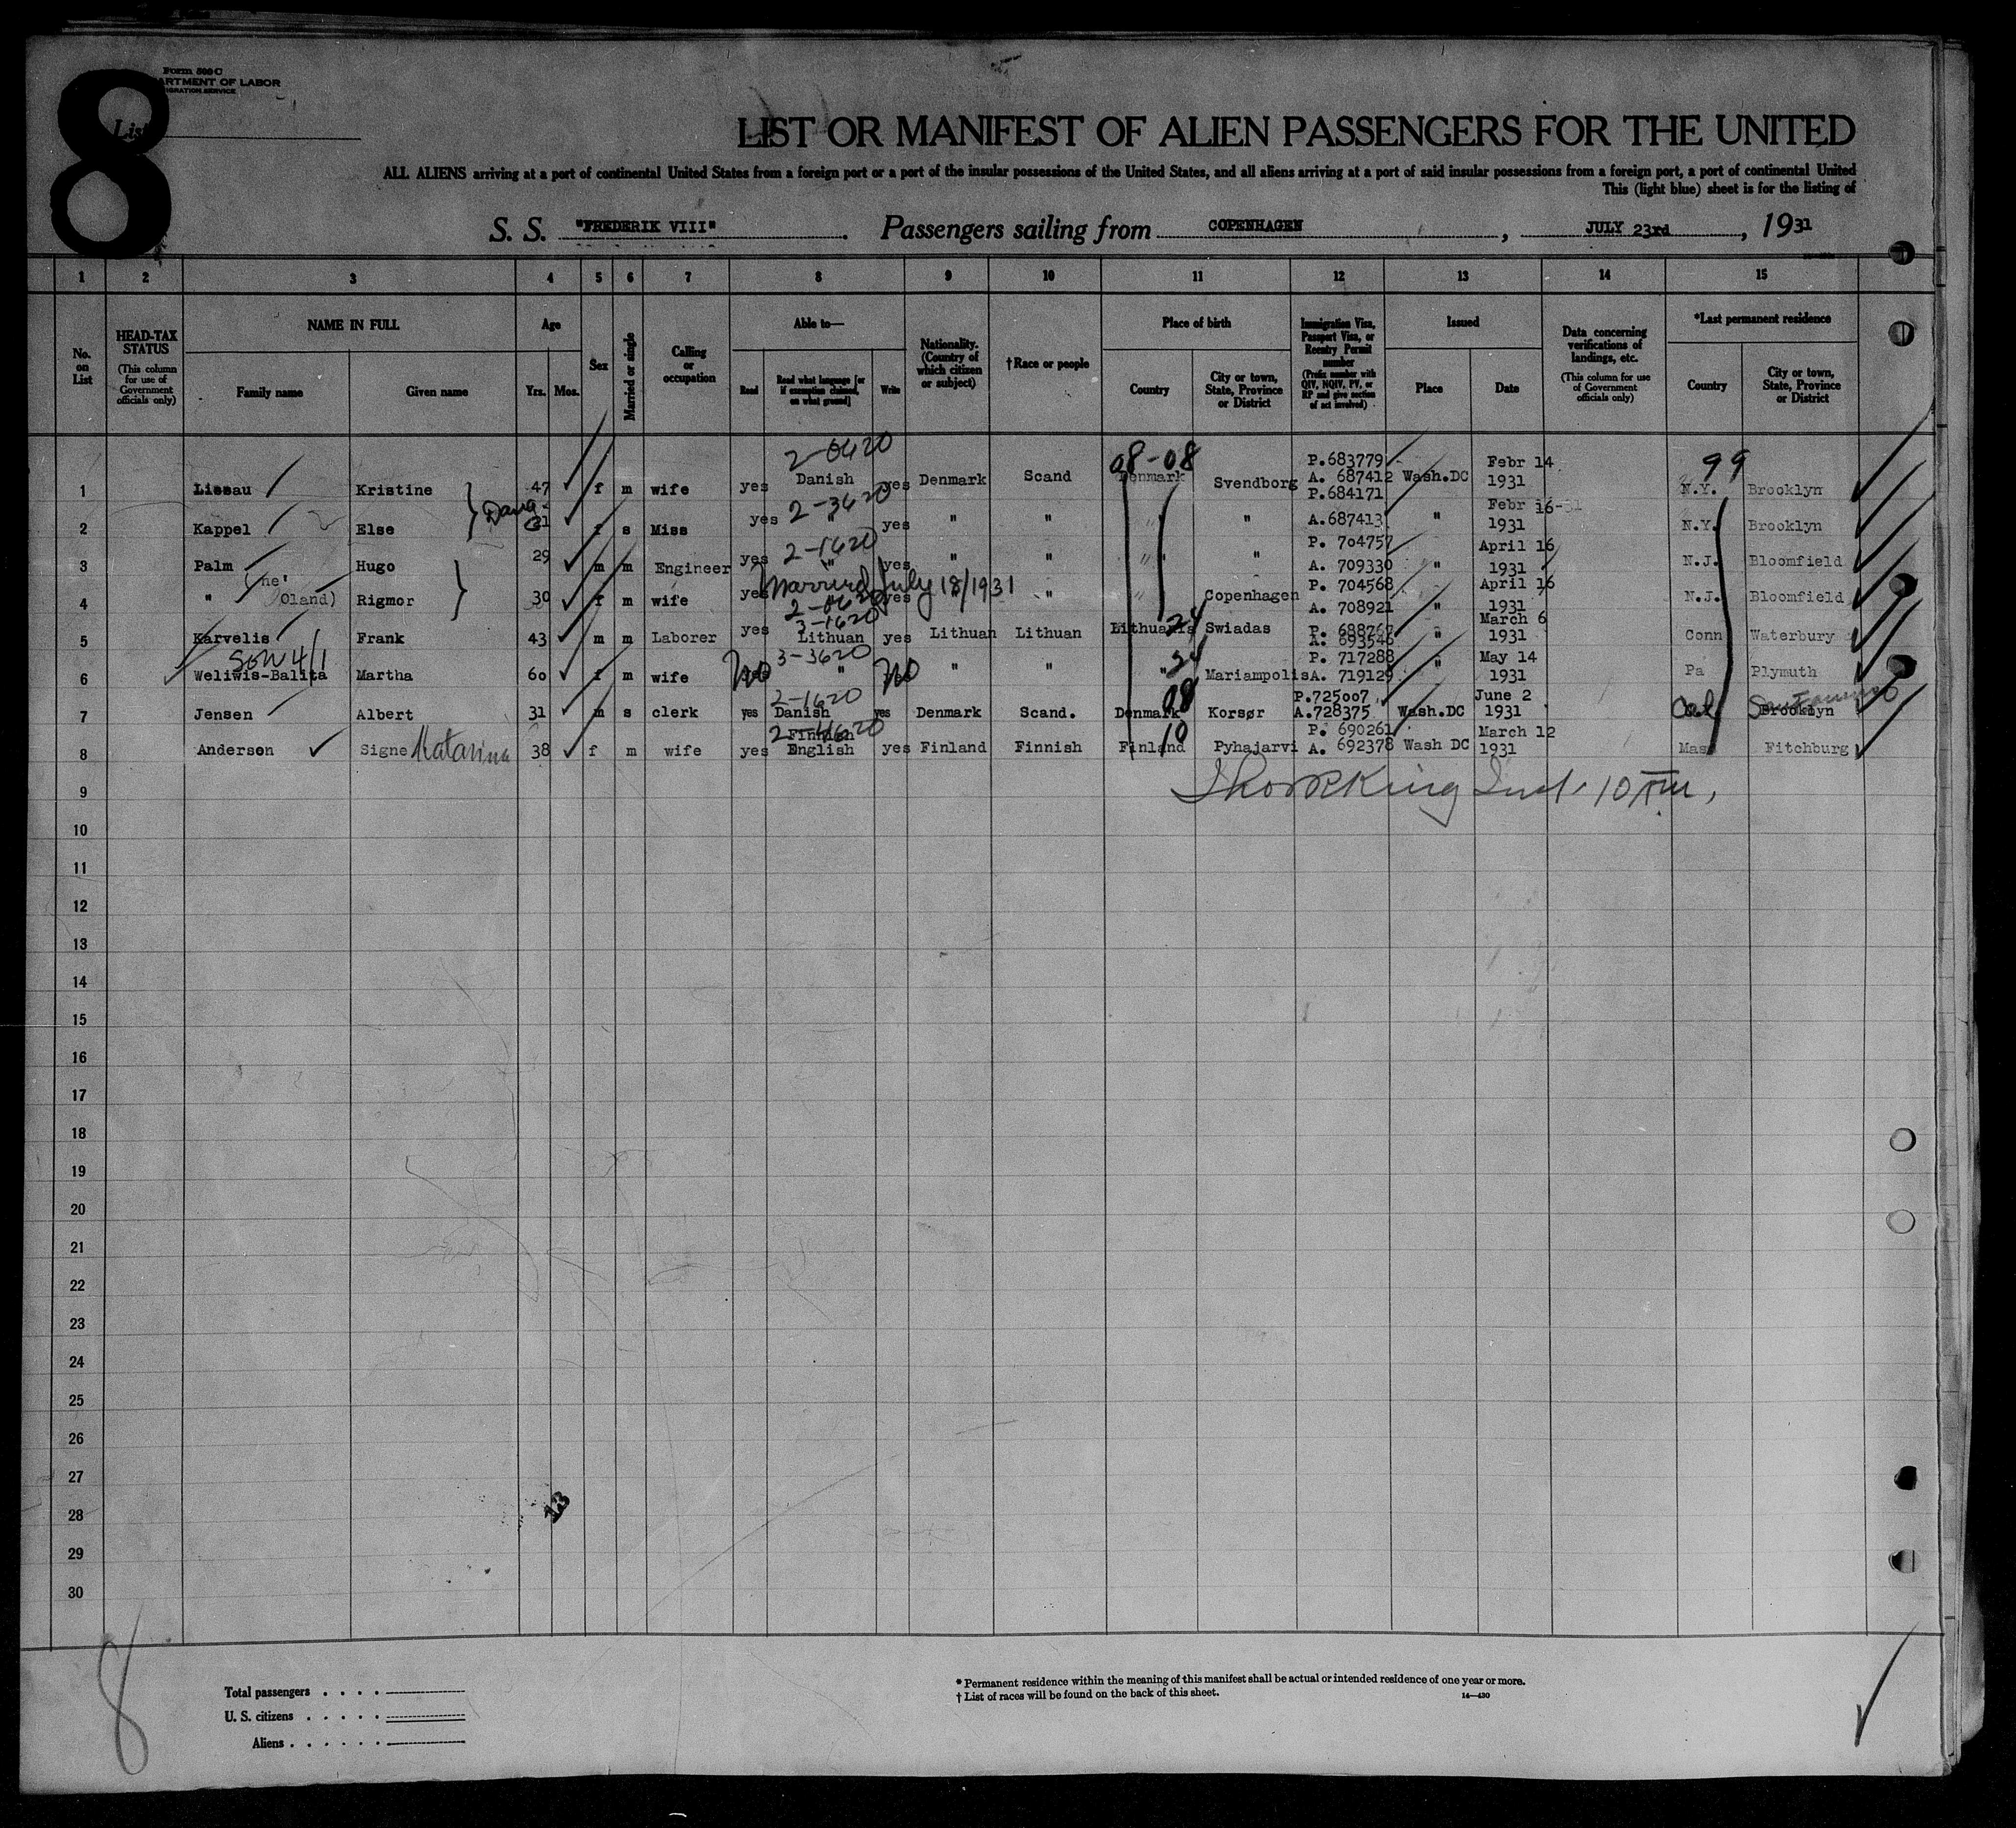 8
Form 500 C
ARTMENT OF LABOR
IGRATION SERVICE
List
LIST OR MANIFEST OF ALIEN PASSENGERS FOR THE UNITED
ALL ALIENS arriving at a port of continental United States from a foreign port or a port of the insular possessions of the United States, and all aliens arriving at a port of said insular possessions from a foreign port, a port of continental United
This (light blue) sheet is for the listing of
S. S. "FREDERIK VIII". Passengers sailing from COPENHAGEN, JULY 23rd, 1931
1 2 3 4 5 6 7 8 9 10 11 12 13 14 15
No. on List
HEAD-TAX STATUS (This column for use of Government officials only)
NAME IN FULL Family name Given name
Age Yrs. Mos.
Sex
Married or single
Calling or occupation
Able to— Read Read what language [or if exemption claimed, on what ground] Write
Nationality. (Country of which citizen or subject)
†Race or people
Place of birth Country City or town, State, Province or District
Immigration Visa, Passport Visa, or Reentry Permit number (Prefix number with QIV, NQIV, PV, or RP and give section of act involved)
Issued Place Date
Data concerning verifications of landings, etc. (This column for use of Government officials only)
*Last permanent residence Country City or town, State, Province or District
2-0620 08-08 P.683779 Febr 14 99
1 Lissau Kristine 47 f m wife yes Danish yes Denmark Scand Denmark Svendborg A. 687412 Wash.DC 1931 N.Y. Brooklyn
Daug. 2-3620 P.684171 Febr 16-31
2 Kappel Else 21 f s Miss yes " yes " " " " A.687413 " 1931 N.Y. Brooklyn
2-1620 P. 704757 April 16
3 Palm Hugo 29 m m Engineer yes " yes " " " " A. 709330 " 1931 N.J. Bloomfield
(ne' Married July 18/1931 P. 704568 April 16
4 " Oland) Rigmor 30 f m wife yes 2-0620 yes " " Copenhagen A. 708921 " 1931 N.J. Bloomfield
3-1620 24 P. 688767 March 6
5 Karvelis Frank 43 m m Laborer yes Lithuan yes Lithuan Lithuan Lithuania Swiadas A. 693546 " 1931 Conn Waterbury
SOW 4/1 3-3620 24 P. 717288 May 14
6 Weliwis-Balita Martha 60 f m wife No " No " " " Mariampolis A. 719129 " 1931 Pa Plymuth
2-1620 08 P.725007 June 2
7 Jensen Albert 31 m s clerk yes Danish yes Denmark Scand. Denmark Korsør A.728375 Wash.DC 1931 Cal Brooklyn
Finnish 10 P. 690261 March 12
8 Anderson Signe Katarina 38 f m wife yes English yes Finland Finnish Finland Pyhajarvi A. 692378 Wash DC 1931 Mass Fitchburg
9
10
11
12
13
14
15
16
17
18
19
20
21
22
23
24
25
26
27
28
13
29
30
8
Total passengers
U. S. citizens
Aliens
* Permanent residence within the meaning of this manifest shall be actual or intended residence of one year or more.
† List of races will be found on the back of this sheet.
14—430